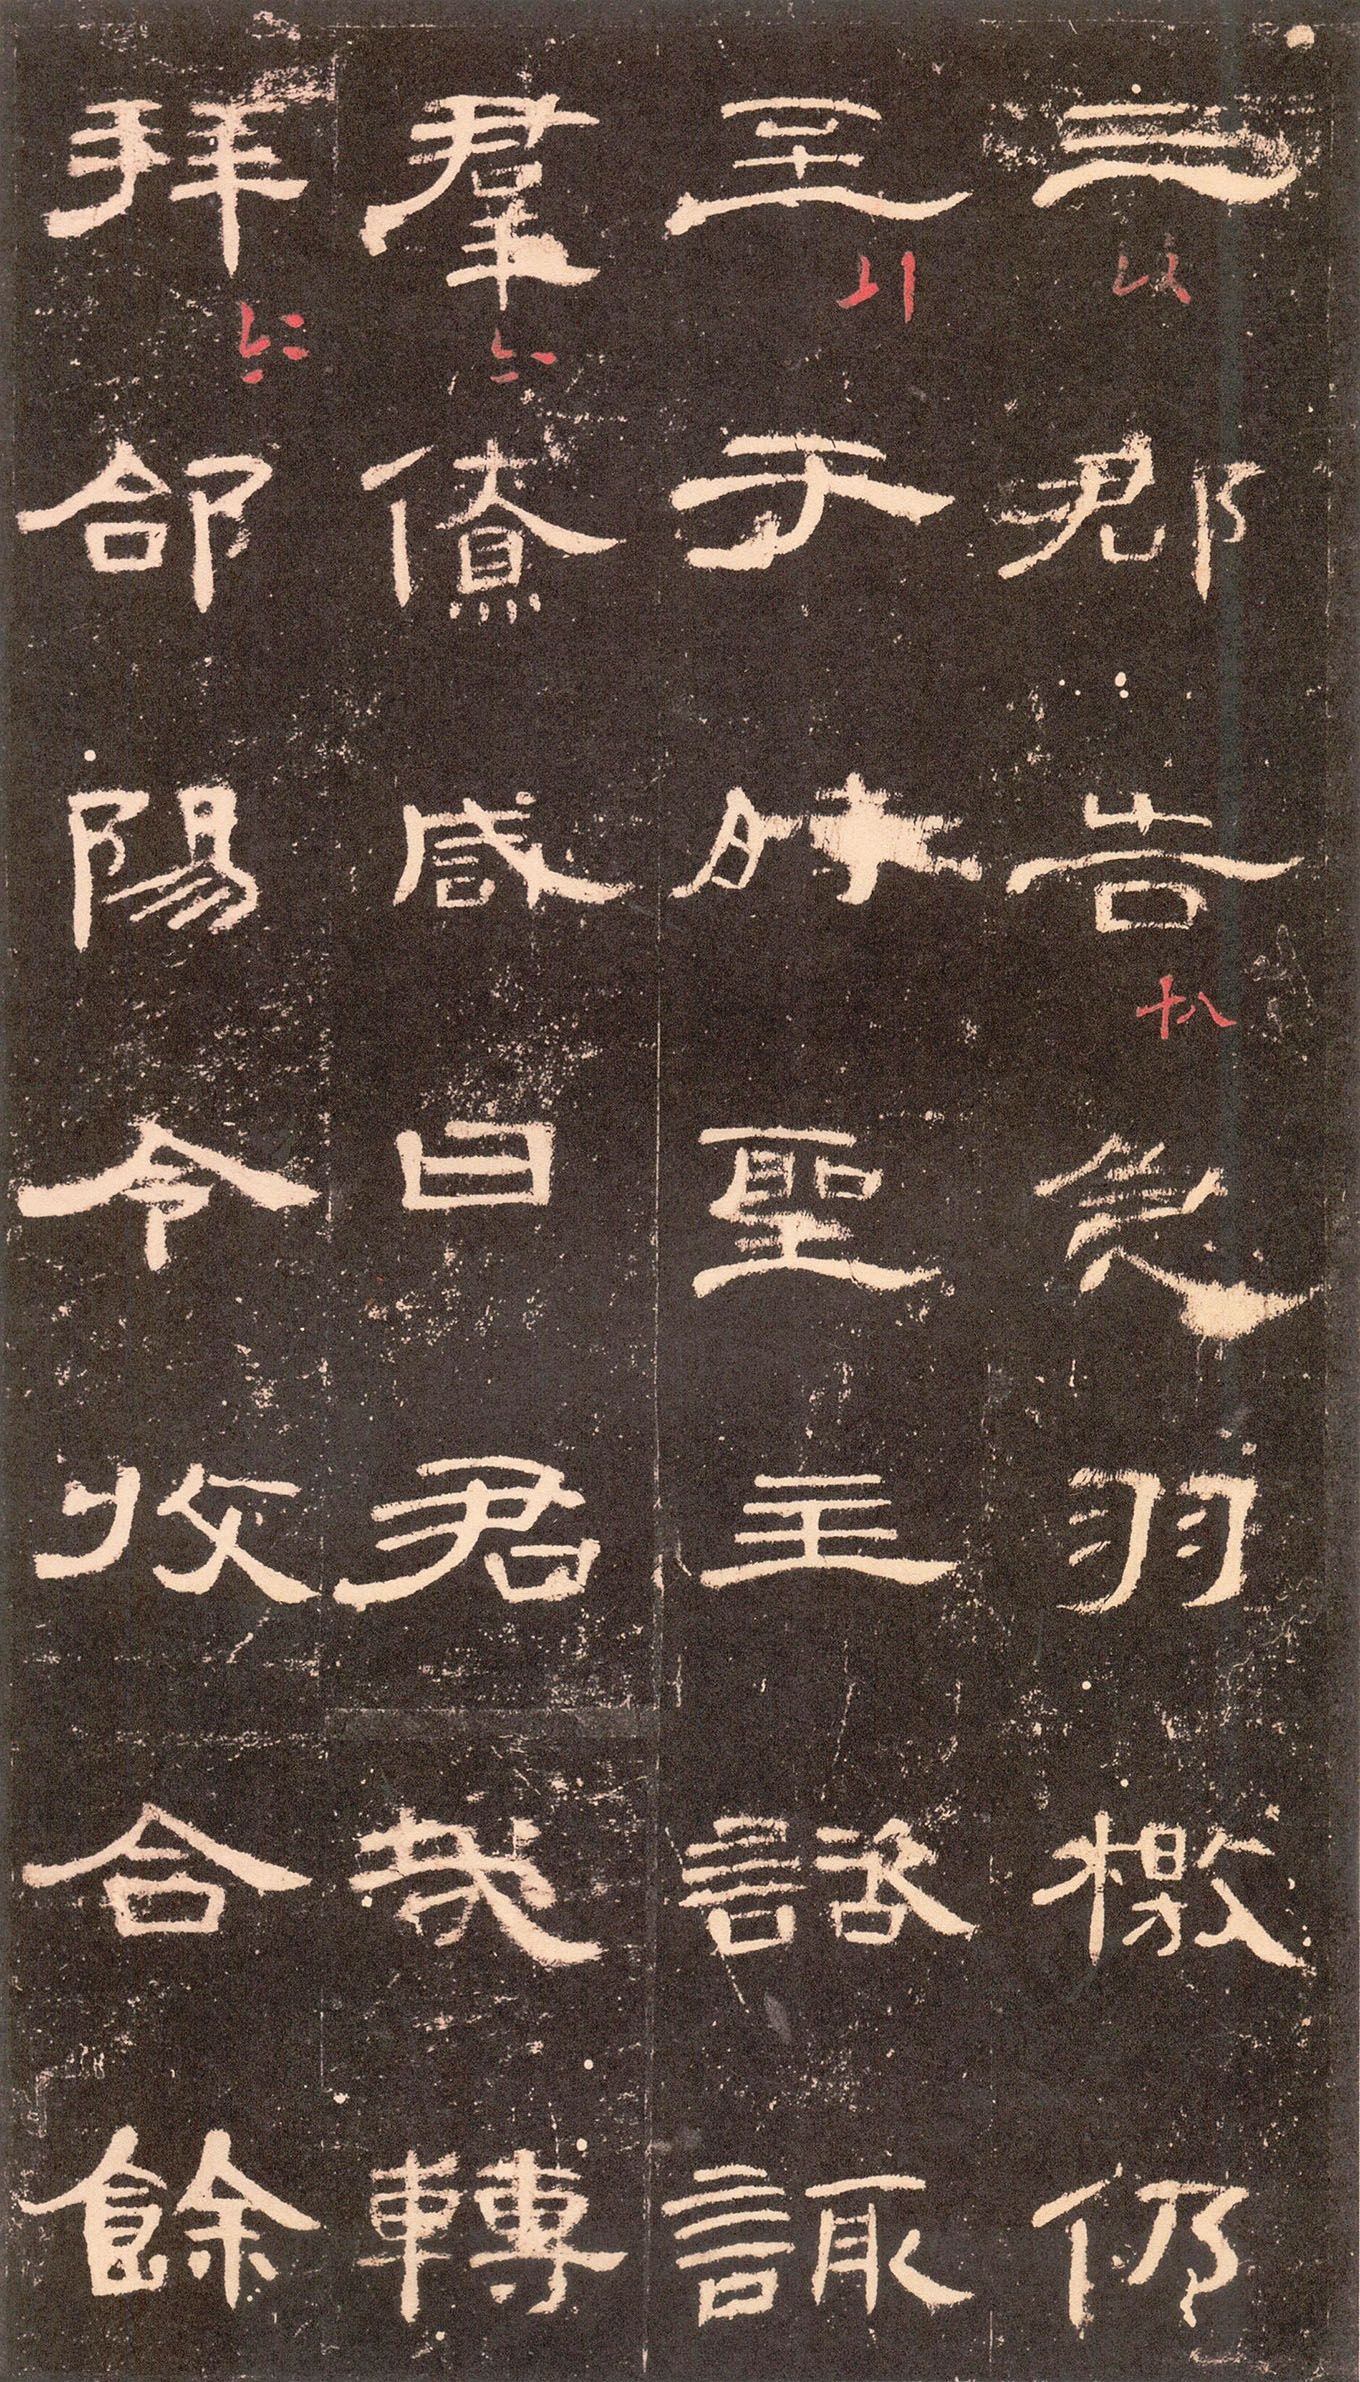 三郡告急羽檄仍
十八
至于時聖主諮諏
羣僚咸曰君哉轉
拜郃陽令收合餘